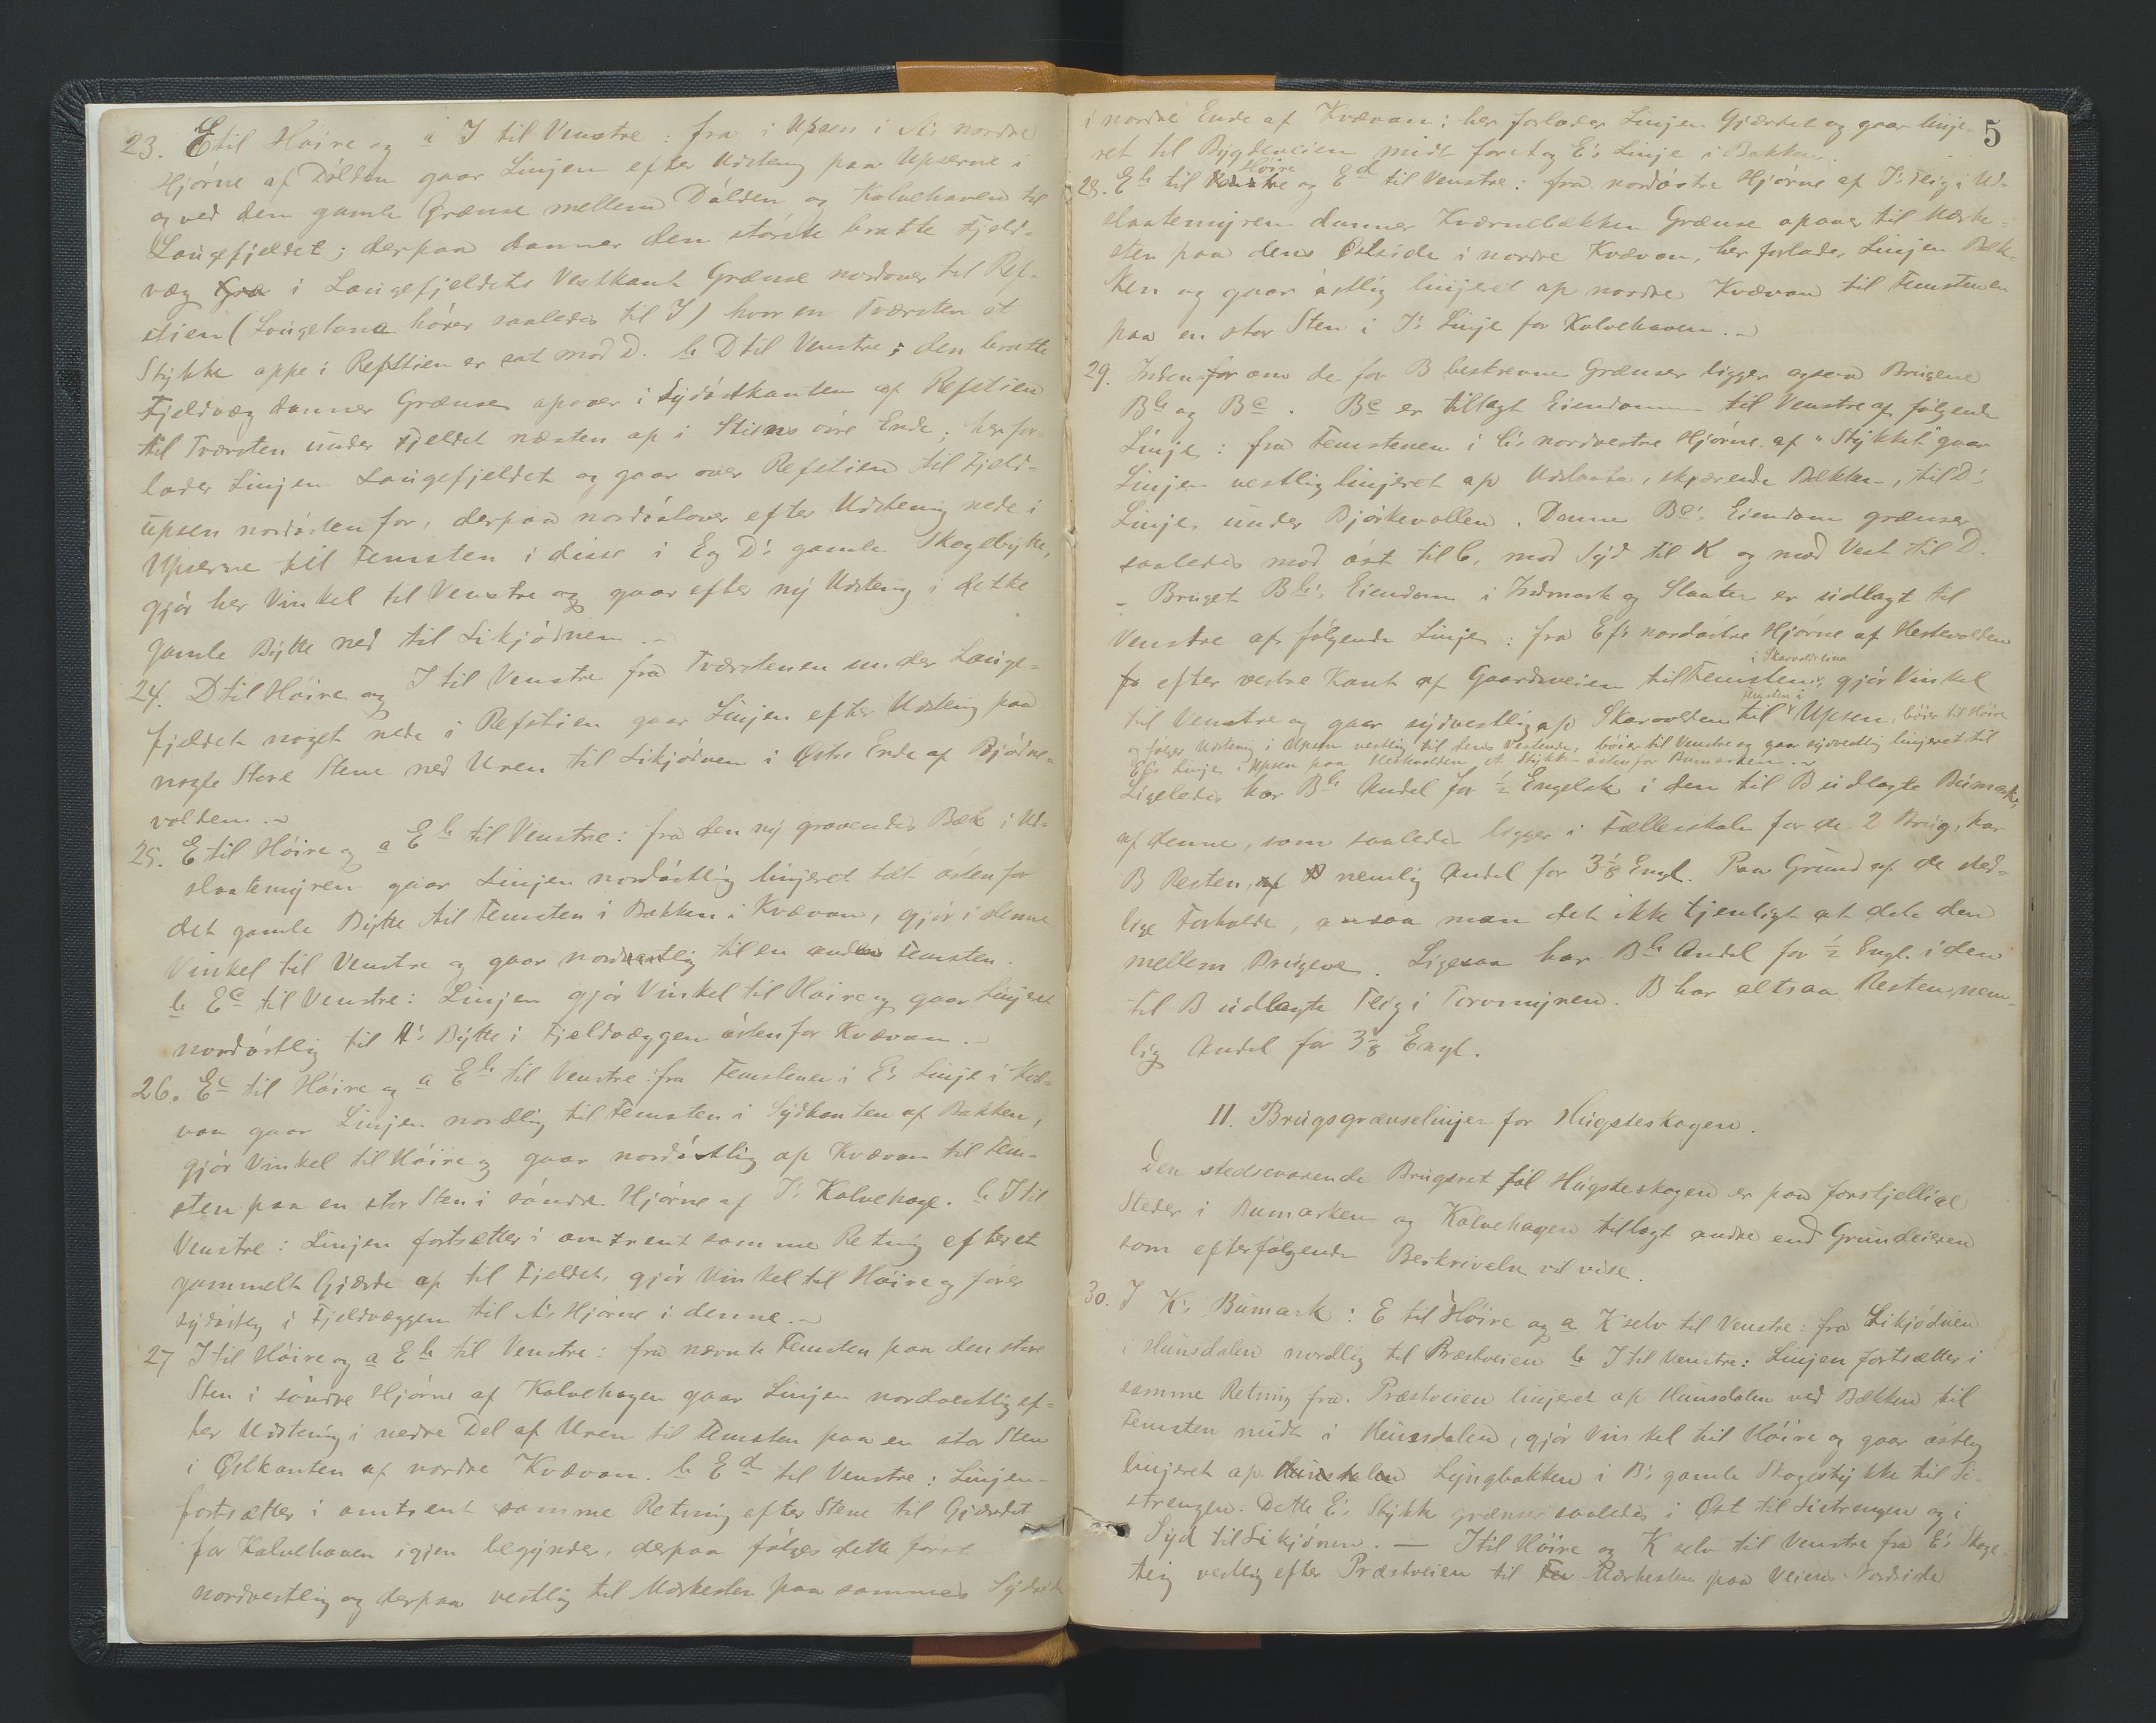 23. E til Höire og a I til Venstre: fra i Upsen i A's nordre
Hjörne af Dölden gaar Linjen efter Udstening paa Upserne i
og ved den gamle Grænse mellem Dölden og Kalvehaven til
Laugefjeldet; derpaa danner den störste bratte Fjeld-
væg Græ i Laugefjeldets Vestkant Grænse nordover til Ref-
stien (Laugetana hörer saaledes til I) hvor en Tværsten et
Stykke oppe i Refstien er sat mod D. b D til Venstre; den bratte
Fjeldvæg danner Grænse opover i Sydöstkanten af Refstien
til Tværsten under Fjeldet næsten op i Stiens övre Ende; her for-
lader Linjen Laugefjeldet og gaar over Refstien til Fjeld-
upsen nordöstenfor, derpaa nordöstover efter Udstening nede i
Upserne til Temsten i disse i E og D's gamle Skogebytte,
gjör her Vinkel til Venstre og gaar efter ny Udstening i dette
gamle Bytte ned til Likjödnen.
24. D til Höire og I til Venstre fra Tværstenen under Lauge-
fjeldet noget nede i Refstien gaar Linjen efter Udstening paa
nogle Store Stene ned Uren til Likjödnen i Östre Ende af Bjödne-
volden.
25. E til Höire og a E b til Venstre: fra den ny gravendes Bæk i Ud-
slaatemyren gaar Linjen nordöstlig linjeret tæt östenfor
det gamle Bytte til Temsten i Bakken i Kvævan, gjör i denne
Vinkel til Venstre og gaar nordvestlig til en anden Temsten.
b E c til Venstre: Linjen gjör Vinkel til Höire og gaar linjeret
nordöstlig til A's Bytte i Fjeldvæggen östenfor Kvævan.
26. E c til Höire og a E b til Venstre: fra Temstenen i E's Linje i Kvæ-
van gaar Linjen nordlig til Temsten i Sydkanten af Bakken,
gjör Vinkel til Höire og gaar nordöstlig op Kvævan til Tem-
sten paa en stor Sten i söndre Hjörne af I's Kalvehage. b I til
Venstre: Linjen fortsætter i omtrent samme Retning efter et
gammelt Gjærde op til Fjeldet, gjör Vinkel til Höire og förer
sydöstlig i Fjeldvæggen til A's Hjörne i denne.
27 I til Höire og a E b til Venstre: fra nævnte Temsten paa den store
Sten i söndre Hjörne af Kalvehagen gaar Linjen nordvestlig ef-
ter Udstening i nedre Del af Uren til Temsten paa en stor Sten
i Östkanten af nordre Kvævan. b E d til Venstre: Linjen
fortsætter i omtrent samme Retning efter Stene til Gjærdet
for Kalvehaven igjen begynder, derpaa fölger dette först
nordvestlig og derpaa vestlig til Merkesten paa sammes Sydside
5
i nordre Ende af Kvævan; her forlader Linjen Gjærdet og gaar linje-
ret til Bygdeveien midt foret og E's Linje i Bakken.
Höire
28. E b til Venstre og E d til Venstre: fra nordöstre Hjörne af I's Teig i Ud-
slaatemyren danner Kværnebækken Grænse opover til Merke-
sten paa dens Östside i nordre Kvævan, her forlader Linjen Bæk-
ken og gaar östlig linjeret op nordre Kvævan til Temstenen
paa en stor Sten i I's Linje for Kalvehaven.
29. Indenfor om de for B beskrevne Grænser ligger ogsaa Brugene
B b og B c. B c er tillagt Eiendommen til Venstre af fölgende
Linje: fra Temstenen i C's nordvestre Hjörne af "Stykket" gaar
Linjen vestlig linjeret op Udslaata, skjærende Bækken, til D's
Linje under Björkevollen. Denne B c's Eiendom grænser
saaledes mod öst til C, mod Syd til K og mod Vest til D.
- Bruget B b's Eiendom i Indmark og Slaatter er udlagt til
Venstre af fölgende Linje: fra Ef's nordöstre Hjörne af Hestevolden
i Skarvoldreina
fo efter vestre Kant af Gaardsveien til Temsten, gjör Vinkel
Temsten i
til Venstre og gaar sydvestlig op Skarvolden til Upsen, böier til Höire
og fölger Udstening i Upsen vestlig til dens Vestende, böier til Venstre og gaar sydvestlig linjeret til
Ef's Linje i Upsen paa Hestevolden et Stykke östenfor Bumarken.
Ligeledes har B b Andel for ½ Engelsk i den til B udlagte Bumark,
af denne, som saaledes ligger i Fællesskab for de 2 Brug, har
B Resten, af B nemlig Andel for 3⅛ Engl. Paa Grund af de sted-
lige Forholde, ansaa man det ikke tjenligt at dele den
mellem Brugene. Ligesaa har B b Andel for ½ Engl. i den
til B udlagte Teig i Torvmyren. B har altsaa Resten, nem-
lig Andel for 3⅛ Engl.
II. Brugsgrænselinjer for Hugsteskogen.
Den stedsevarende Brugsret til Hugsteskogen er paa forskjellige
Steder i Bumarken og Kalvehagen tillagt andre end Grundeieren
som efterfölgende Beskrivelse vil vise.
30. I K's Bumark: E til Höire og a K selv til Venstre: fra Likjödnen
i Hunsdalen nordlig til Præstveien b I til Venstre: Linjen fortsætter i
samme Retning fra Præstveien linjeret op Hunsdalen ved Bækken til
Temsten midt i Hunsdalen, gjör Vinkel til Höire og gaar östlig
linjeret op Hunsdalen Lyngbakken i B's gamle Skogestykke til Li-
strengen. Dette E's Stykke grænser saaledes i Öst til Listrengen og i
Syd til Likjönen. — I til Höire og K selv til Venstre fra E's Skoge-
teig vestlig efter Præstveien til Tem Merkesten paa Veiens Nordside